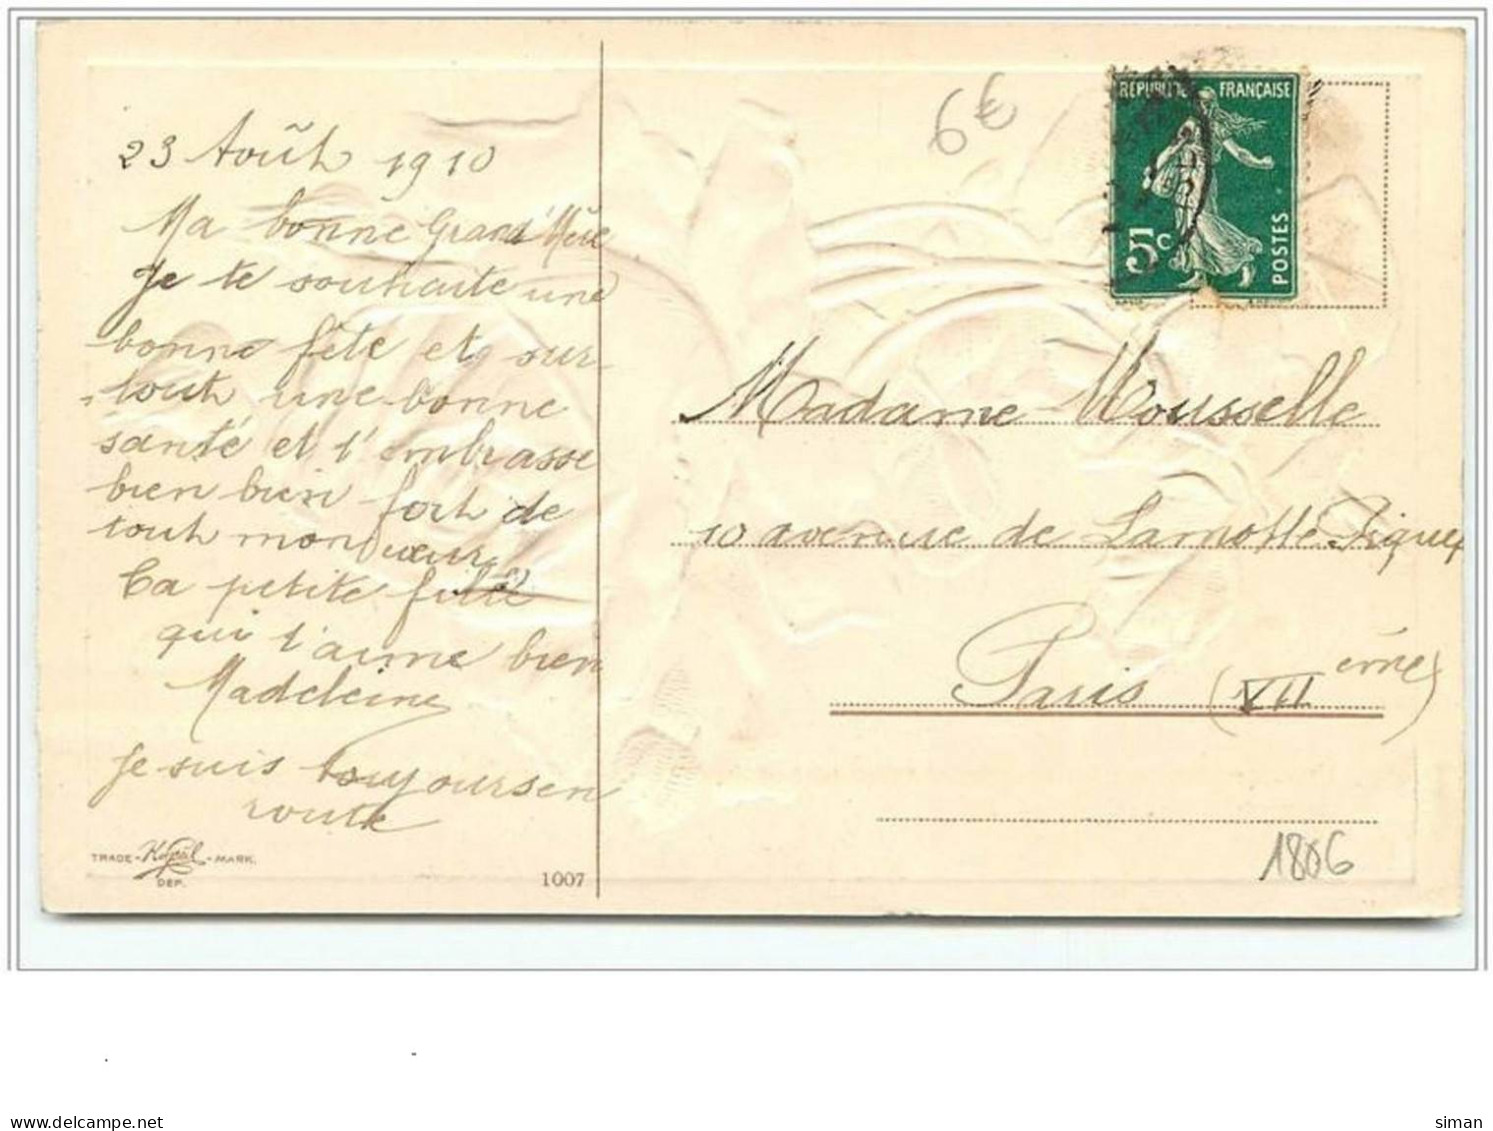 23 Août 1910
Ma bonne Grand'Mère
Je te souhaite une
bonne fête et sur-
tout une bonne
santé et t'embrasse
bien bien fort de
tout mon cœur
Ta petite fille
qui t'aime bien
Madeleine
Je suis toujours en
route
TRADE - MARK.
DEP.
1007
6€
RÉPUBLIQUE FRANÇAISE
5c
POSTES
Madame Mousselle
10 avenue de Lamotte Piquet
Paris (VII ème)
1806
delcampe.net
siman